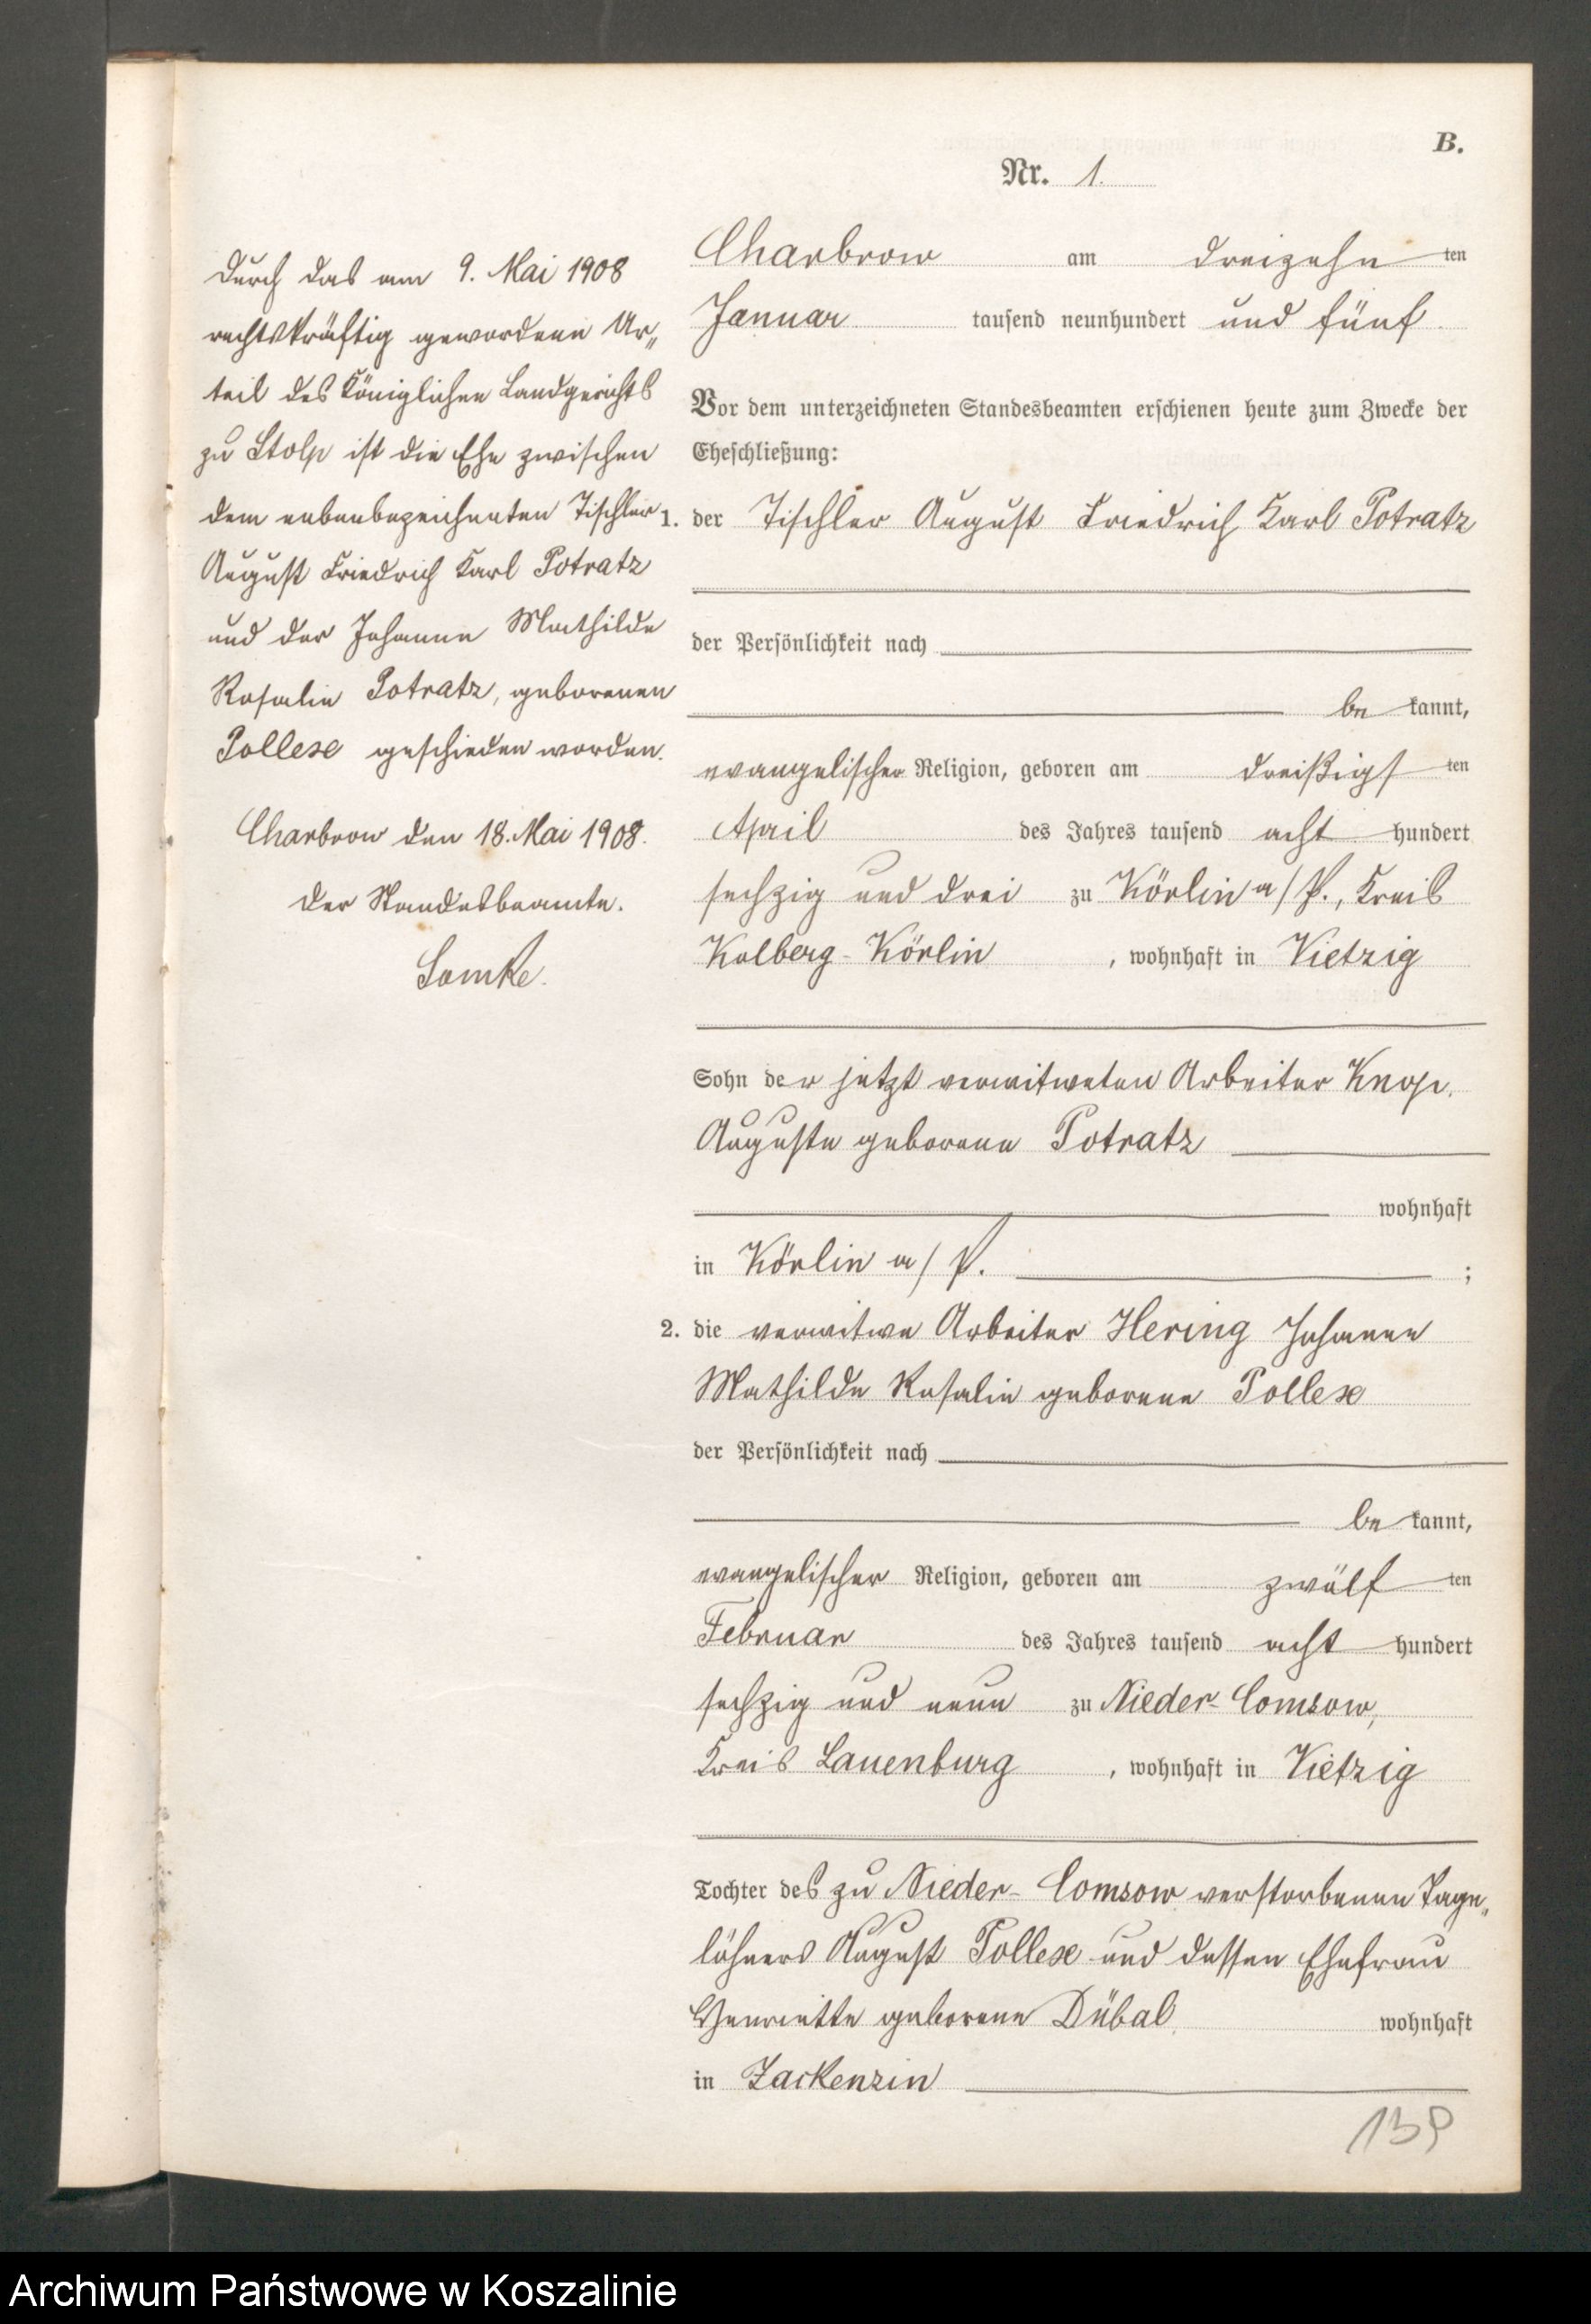 B.
Nr. 1.
Durch das am 9. Mai 1908
rechtskräftig gewordene Ur„
teil des Königlichen Landgerichts
zu Stolp ist die Ehe zwischen
dem nebenbezeichneten Tischler
August Friedrich Karl Potratz
und der Johanne Mathilde
Rosalie Potratz, geborenen
Pollexe geschieden worden.
Charbrow den 18. Mai 1908.
Der Standesbeamte.
Charbrow am dreizehn ten
Januar tausend neunhundert und fünf
Vor dem unterzeichneten Standesbeamten erschienen heute zum Zwecke der
Eheschließung:
1. der Tischler August Friedrich Karl Potratz
der Persönlichkeit nach
be kannt,
evangelischer Religion, geboren am dreißigs ten
April des Jahres tausend acht hundert
sechzig und drei zu Körlin a/P., Kreis
Kolberg-Körlin, wohnhaft in Vietzig
Sohn der jetzt verwitweten Arbeiter Knop,
Auguste geborene Potratz
wohnhaft
in Körlin a/P. ;
2. die verwitwe Arbeiter Hering Johanne
Mathilde Rosalie geborene Pollexe
der Persönlichkeit nach
be kannt,
evangelischer Religion, geboren am zwölf ten
Februar des Jahres tausend acht hundert
sechzig und neun zu Nieder-Comsow,
Kreis Lauenburg, wohnhaft in Vietzig
Tochter des zu Nieder-Comsow verstorbenen Tage„
löhners August Pollexe und dessen Ehefrau
Henriette geborene Dübal, wohnhaft
in Zackenzin
Archiwum Państwowe w Koszalinie